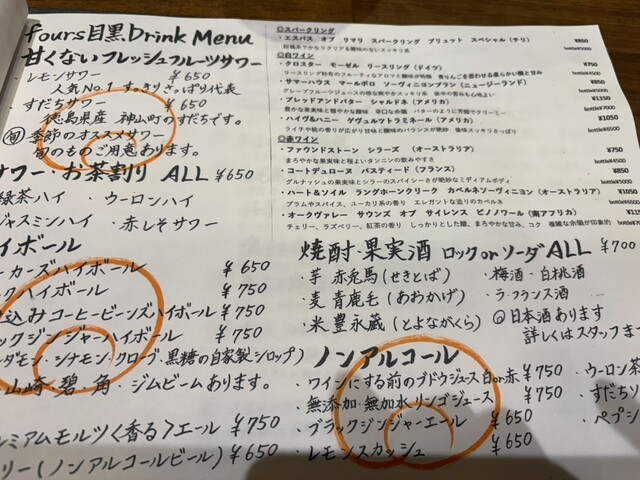 fours目黒Drink Menu
甘くないフレッシュフルーツサワー
・レモンサワー ¥650
人気No.1 すっきりさっぱり代表
・すだちサワー ¥650
徳島県産 神山町のすだちです。
旬 季節のオススメサワー
旬のものご用意あります。
サワー・お茶割り ALL ¥650
緑茶ハイ ・ウーロンハイ
ジャスミンハイ ・赤しそサワー
イボール
ーカーズハイボール ¥650
クハイボール ¥750
込みコーヒービーンズハイボール ¥750
ラックジンジャーハイボール ¥750
ダモン・シナモン・クローブ・黒糖の自家製シロップ)
山崎・碧・角・ジムビームあります。
ミアムモルツ〈香る〉エール ¥750
リー(ノンアルコールビール) ¥650
◎スパークリング
・エスパス オブ リマリ スパークリング ブリュット スペシャル(チリ) ¥850
bottle¥5000
◎白ワイン
・クロスター モーゼル リースリング(ドイツ) ¥750
bottle¥4500
・サマーハウス マールボロ ソーヴィニヨンブラン(ニュージーランド) ¥850
bottle¥5000
・ブレッドアンドバター シャルドネ(アメリカ) ¥1150
bottle¥7000
・ハイヴ&ハニー ゲヴュルツトラミネール(アメリカ) ¥1050
ライチや桃の香りが広がり甘味と酸味のバランスが絶妙 後味スッキリさっぱり
◎赤ワイン
・ファウンドストーン シラーズ (オーストラリア) ¥750
まろやかな果実味と程よいタンニンの飲みやすさ
・コートデュローヌ バスティード(フランス) ¥850
グルナッシュの果実味とシラーのスパイシーさが絶妙なミディアムボディ
・ハート&ソイル ラングホーンクリーク カベルネソーヴィニヨン(オーストラリア) ¥1050
プラムやスパイス、ユーカリ系の香り エレガントな造りのカベルネ
・オークヴァレー サウンズ オブ サイレンス ピノノワール(南アフリカ) ¥1150
チェリー、ラズベリー、紅茶の香り しっかりとした酸、まろやかな甘み、コク 複雑な余韻が印象的
焼酎・果実酒 ロックorソーダALL ¥700
・芋 赤兎馬(せきとば) ・梅酒・白桃酒
・麦 青鹿毛(あおかげ) ・ラ・フランス酒
・米 豊永蔵(とよながくら) 日本酒あります
詳しくはスタッフま
ノンアルコール
・ワインにする前のブドウジュース白or赤 ¥750 ・ウーロン茶
・無添加・無加水リンゴジュース ¥750 ・すだちソ
・ブラックジンジャーエール ¥650 ・ペプシ
・レモンスカッシュ ¥650